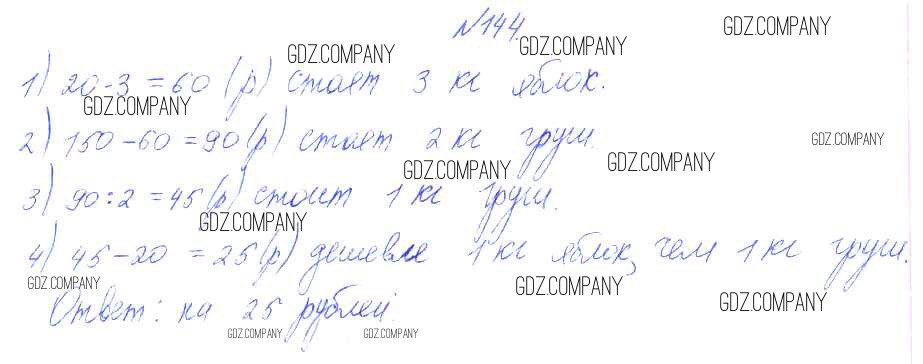 №144.
GDZ.COMPANY GDZ.COMPANY GDZ.COMPANY
1) 20·3 = 60 (р) стоят 3 кг яблок.
GDZ.COMPANY
2) 150-60 = 90 (р) стоят 2 кг груш.
GDZ.COMPANY
GDZ.COMPANY GDZ.COMPANY
3) 90:2 = 45 (р) стоит 1 кг груш.
GDZ.COMPANY
4) 45-20 = 25 (р) дешевле 1 кг яблок, чем 1 кг груш.
GDZ.COMPANY GDZ.COMPANY GDZ.COMPANY
Ответ: на 25 рублей.
GDZ.COMPANY GDZ.COMPANY